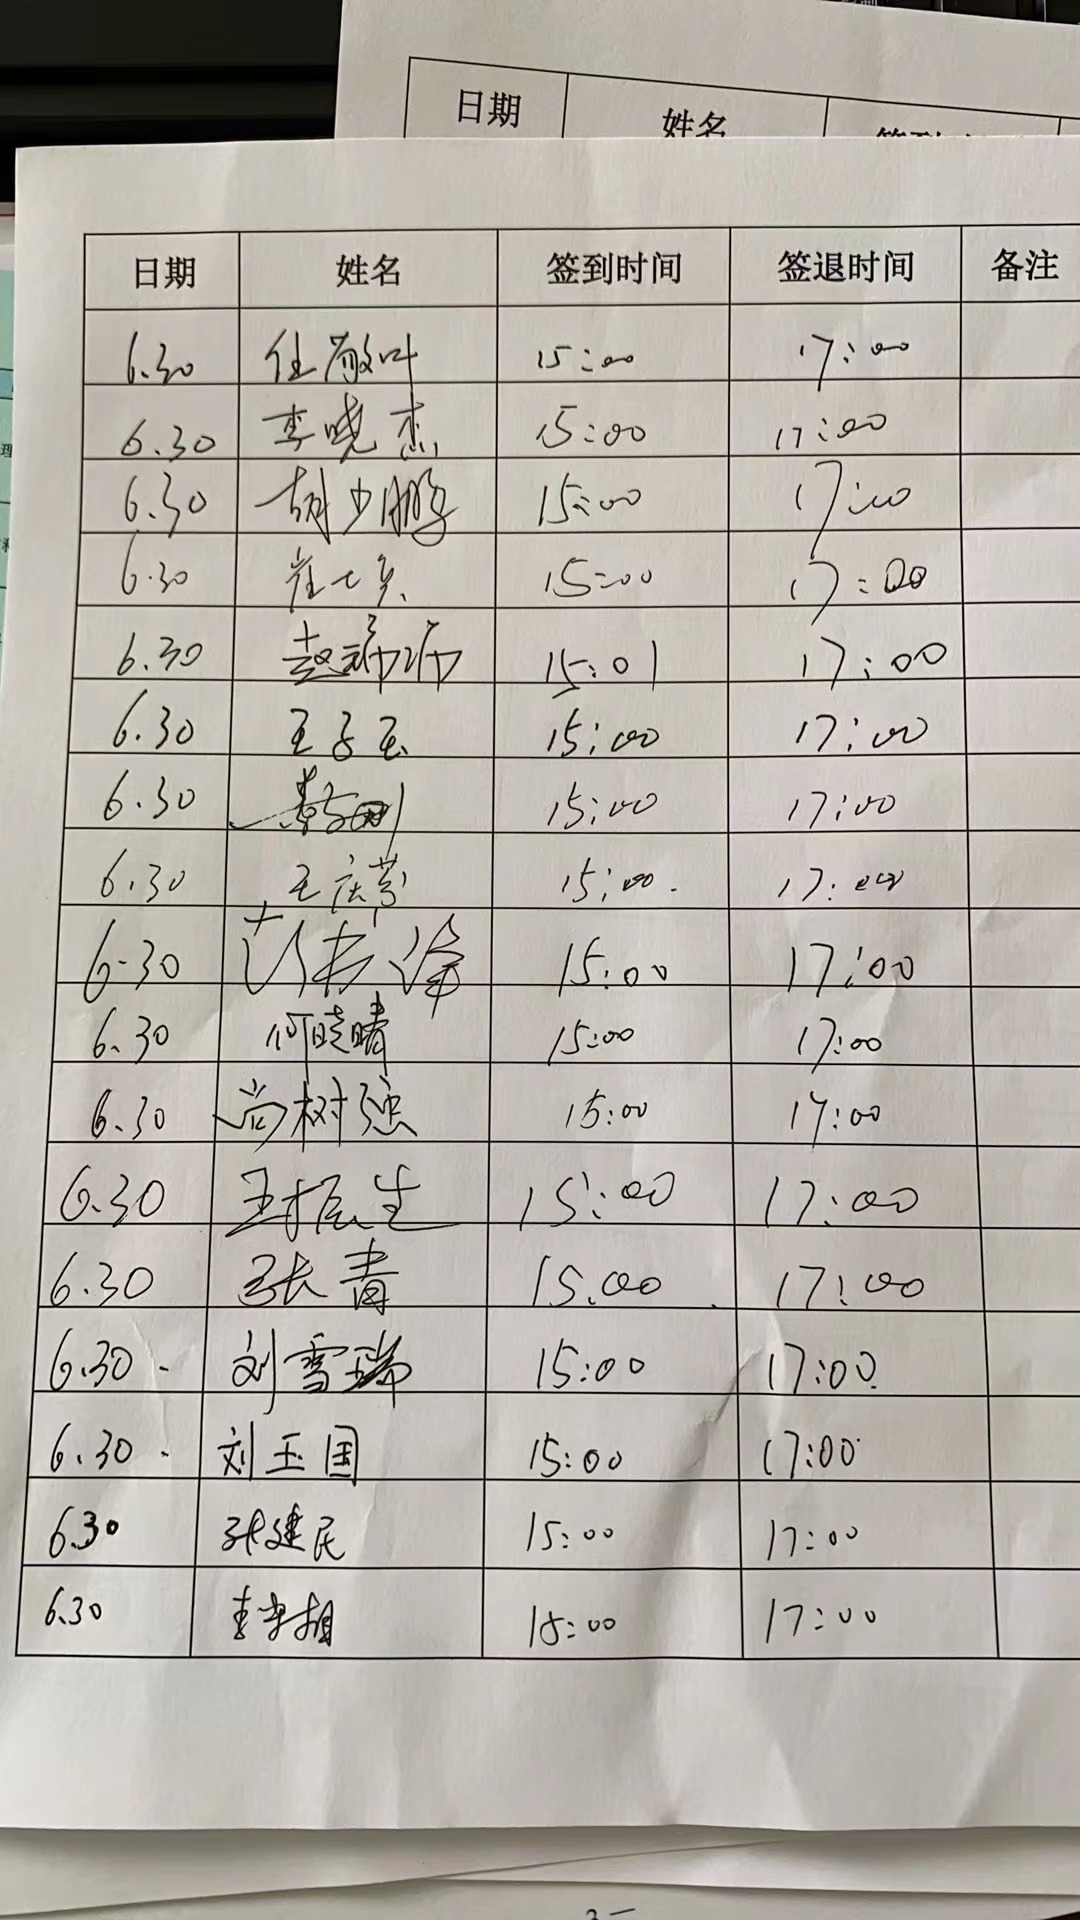 日期 姓名
日期 姓名 签到时间 签退时间 备注
6.30 15:00 17:00
6.30 李晓杰 15:00 17:00
6.30 胡少鹏 15:00 17:00
6.30 15:00 17:00
6.30 赵 15:01 17:00
6.30 王子玉 15:00 17:00
6.30 15:00 17:00
6.30 王庆芬 15:00 17:00
6.30 15:00 17:00
6.30 何晓晴 15:00 17:00
6.30 尚树强 15:00 17:00
6.30 王振生 15:00 17:00
6.30 张青 15:00 17:00
6.30 刘雪瑞 15:00 17:00
6.30 刘玉国 15:00 17:00
6.30 张建民 15:00 17:00
6.30 15:00 17:00